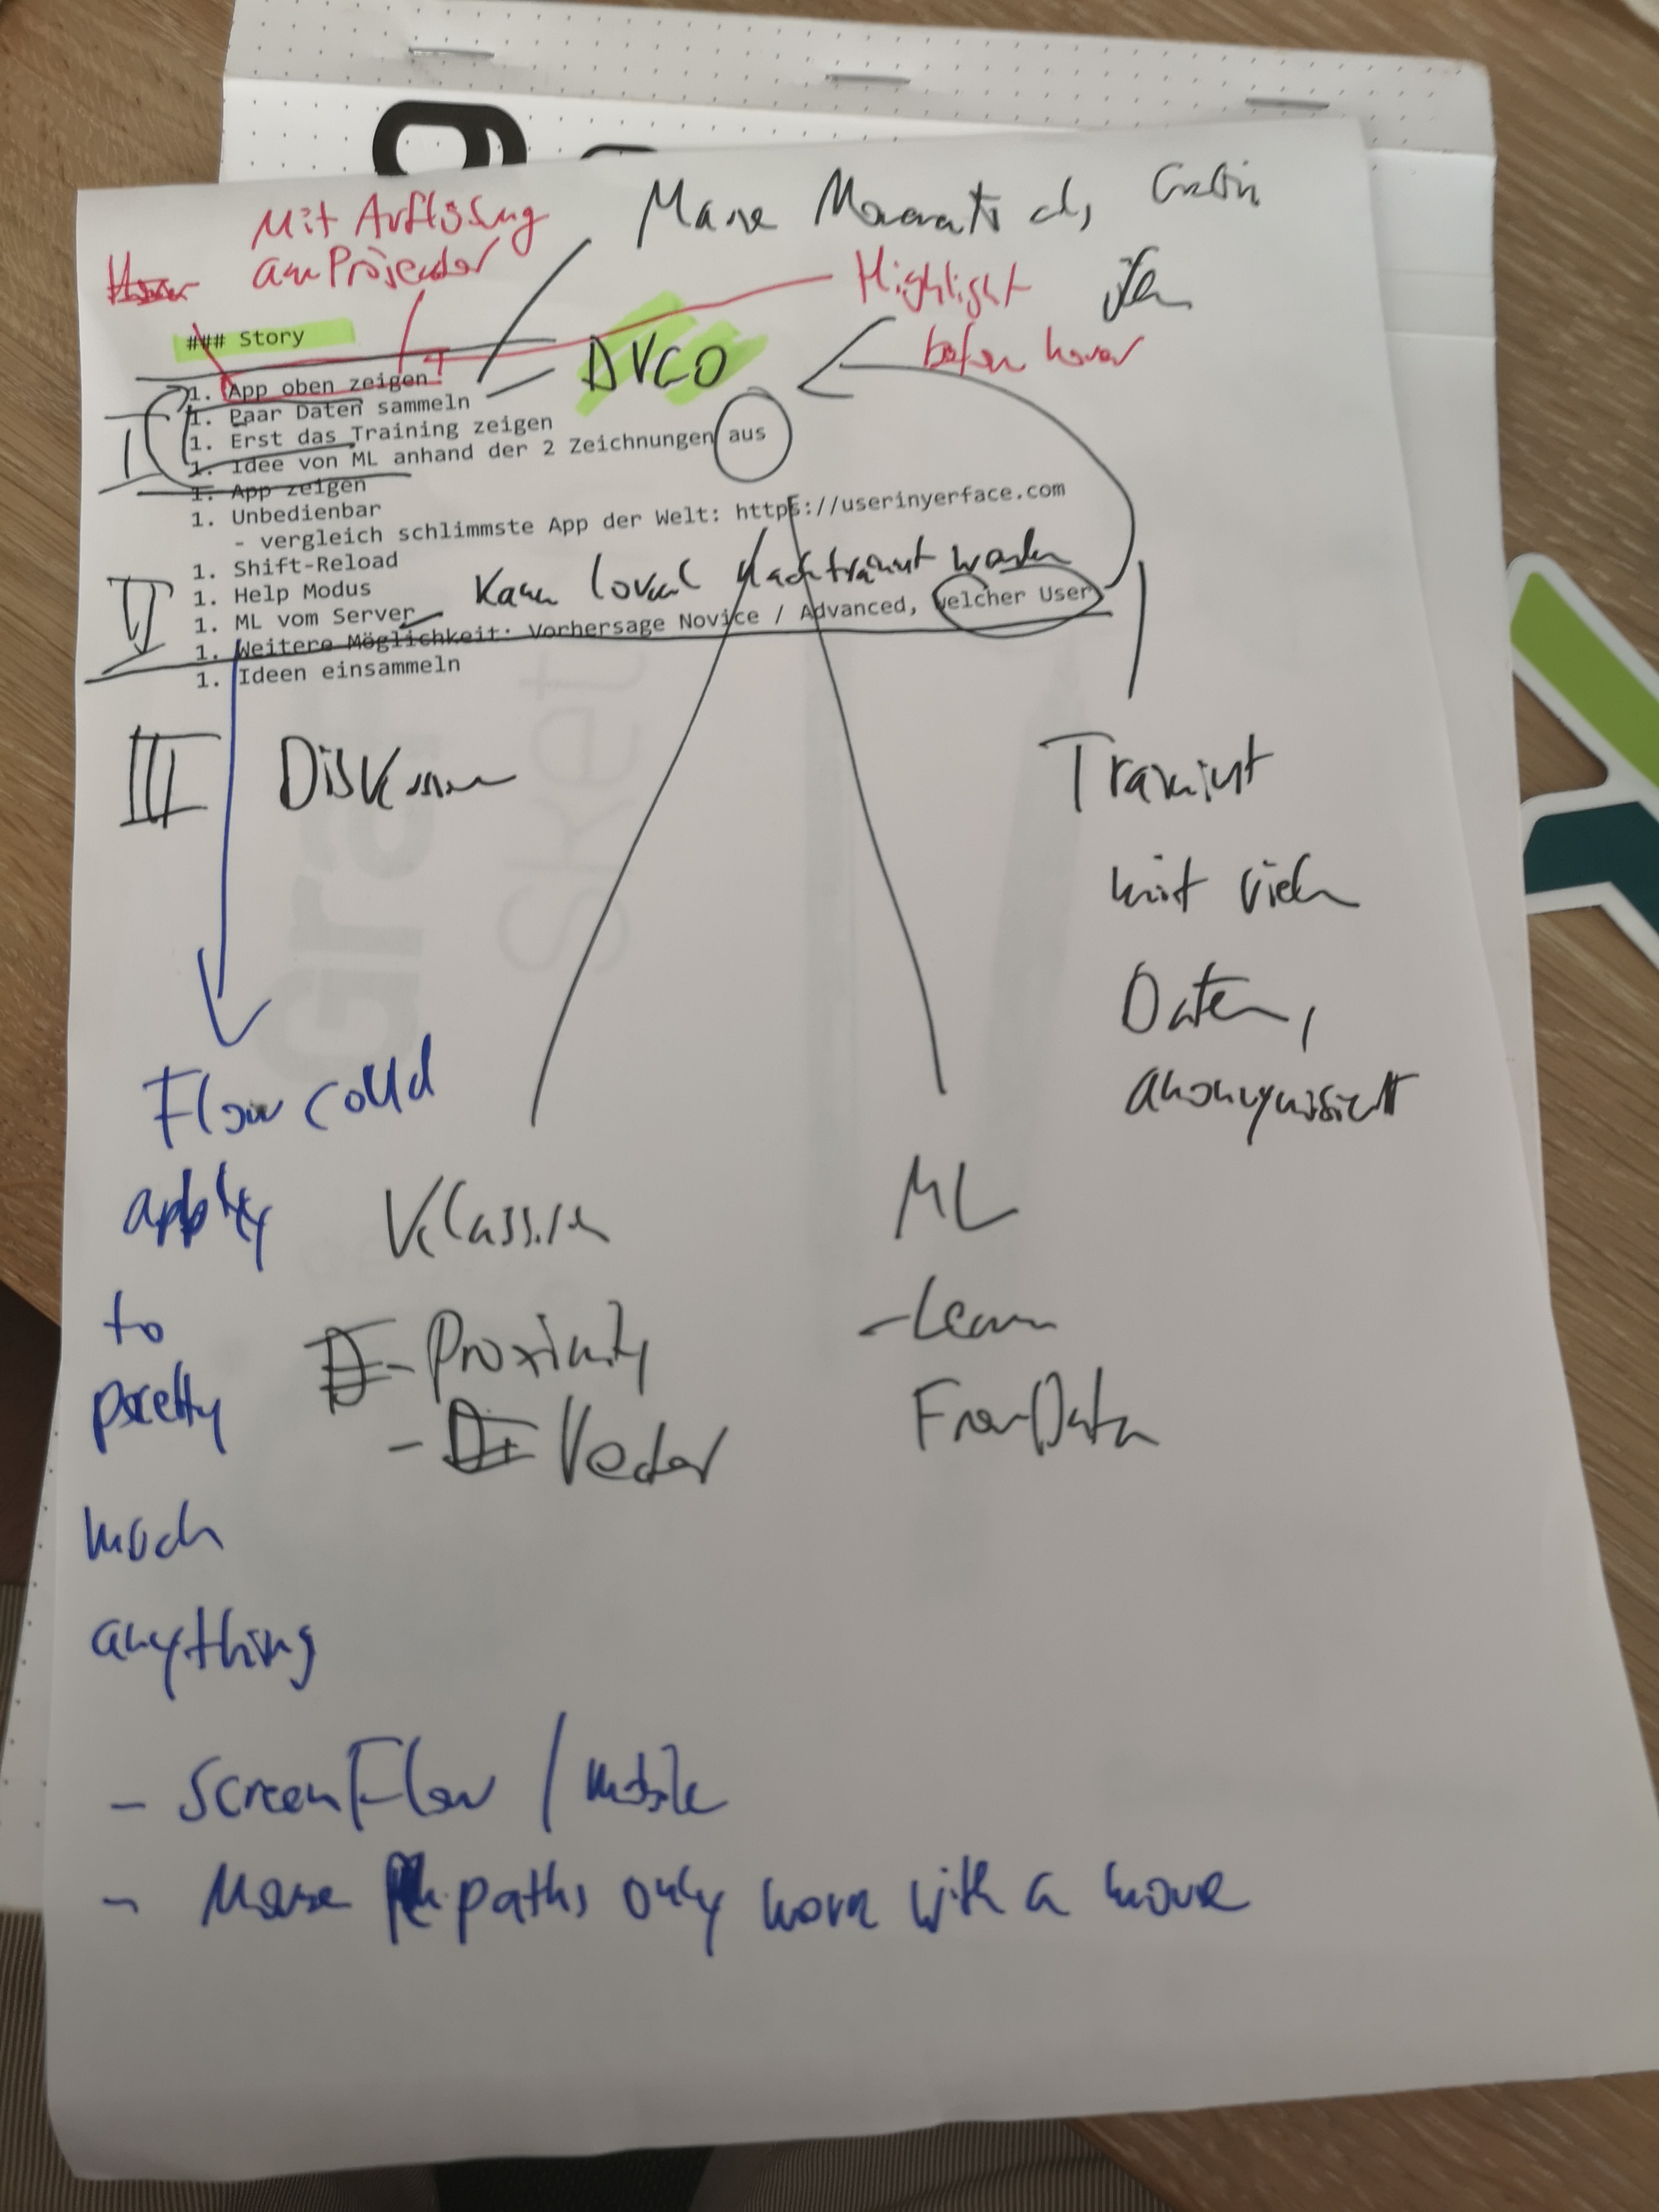 Mit Auflösung
am
Highlight
before hover
### Story
DVCO
1. App oben zeigen
1. Paar Daten sammeln
1. Erst das Training zeigen
1. Idee von ML anhand der 2 Zeichnungen aus
1. App zeigen
1. Unbedienbar
- vergleich schlimmste App der Welt: https://userinyerface.com
1. Shift-Reload
1. Help Modus
Kann local nachtrainiert werden
1. ML vom Server
1. Weitere Möglichkeit: Vorhersage Novice / Advanced, welcher User
1. Ideen einsammeln
I
II
III Diskussion
Trainiert
mit vielen
Daten,
anonymisiert
Flow could
apply
to
pretty
much
anything
Klassisch
- Proximity
- Vector
ML
- Learn
From Data
- Screen Flow / mobile
- Mouse paths only work with a mouse